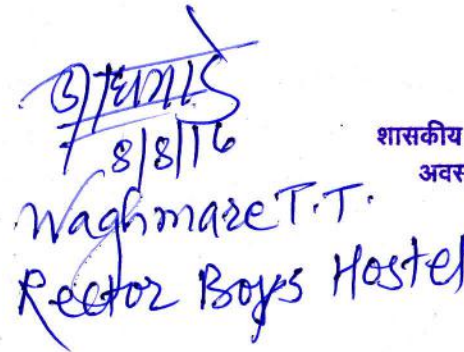 वाघमारे
8/8/16
शासकीय
अवस
Waghmare T.T.
Rector Boys Hostel